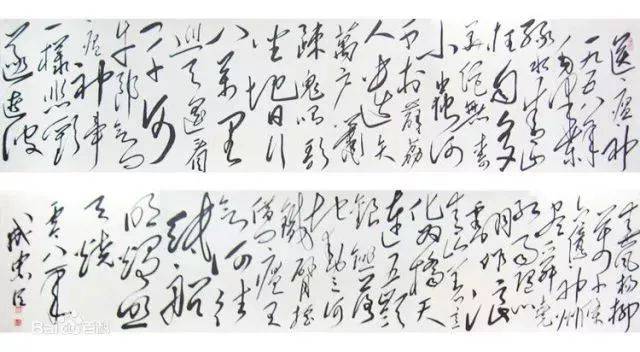 送瘟神
一九五八年
绿水青山
枉自多
华佗無奈
小虫何
千村薜荔
人遗矢
萬户萧
疏鬼唱歌
坐地日行
八萬里
巡天遥看
一千河
牛郎欲问
瘟神事
一样悲歡
逐逝波
春風杨柳
萬千條
六億神州
盡舜尧
红雨随心
翻作浪
青山着意
化为橋天
連五嶺
銀锄落
地动三河
鐵臂摇
借问瘟君
欲何往
纸船
明烛照
天燒
零八年
Bai百科